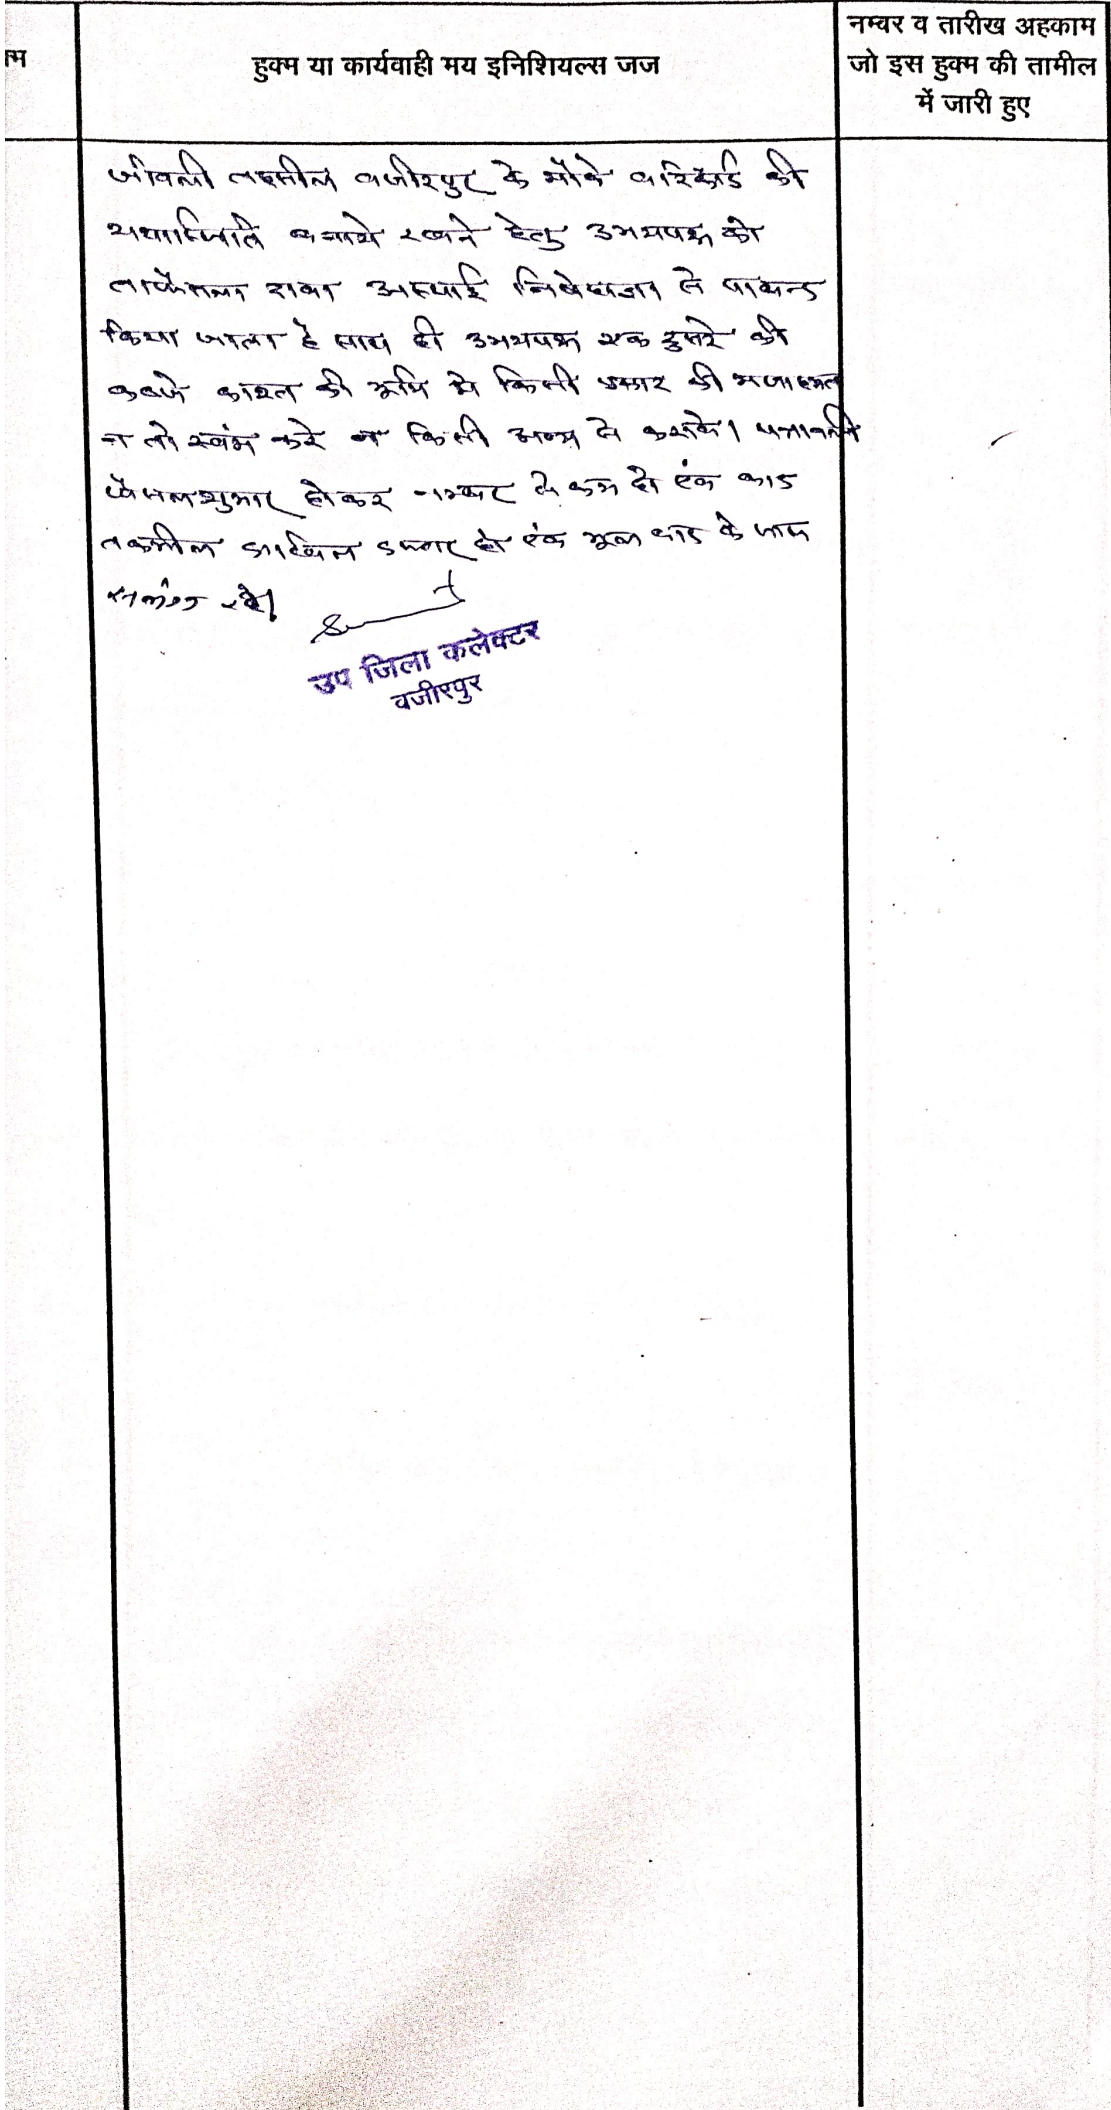 म
हुक्म या कार्यवाही मय इनिशियल्स जज
नम्वर व तारीख अहकाम
जो इस हुक्म की तामील
में जारी हुए
जीवली तहसील वजीरपुर के मौके व रिकार्ड की
यथास्थिति बनाये रखने हेतु उभयपक्ष को
ताफैसला दावा अस्थाई निषेधाज्ञा से पाबन्द
किया जाता है साथ ही उभयपक्ष एक दुसरे की
कब्जे काश्त की भूमि मे किसी प्रकार की मजाहमत
न तो स्वंम करे न किसी अन्य से करावे। पत्रावली
फैसलशुमार होकर नम्बर से कम हो एंव बाद
तकमील दाखिल दफ्तर हो एंव मूल वाद के साथ
संलंग्न रहे।
उप जिला कलेक्टर
वजीरपुर